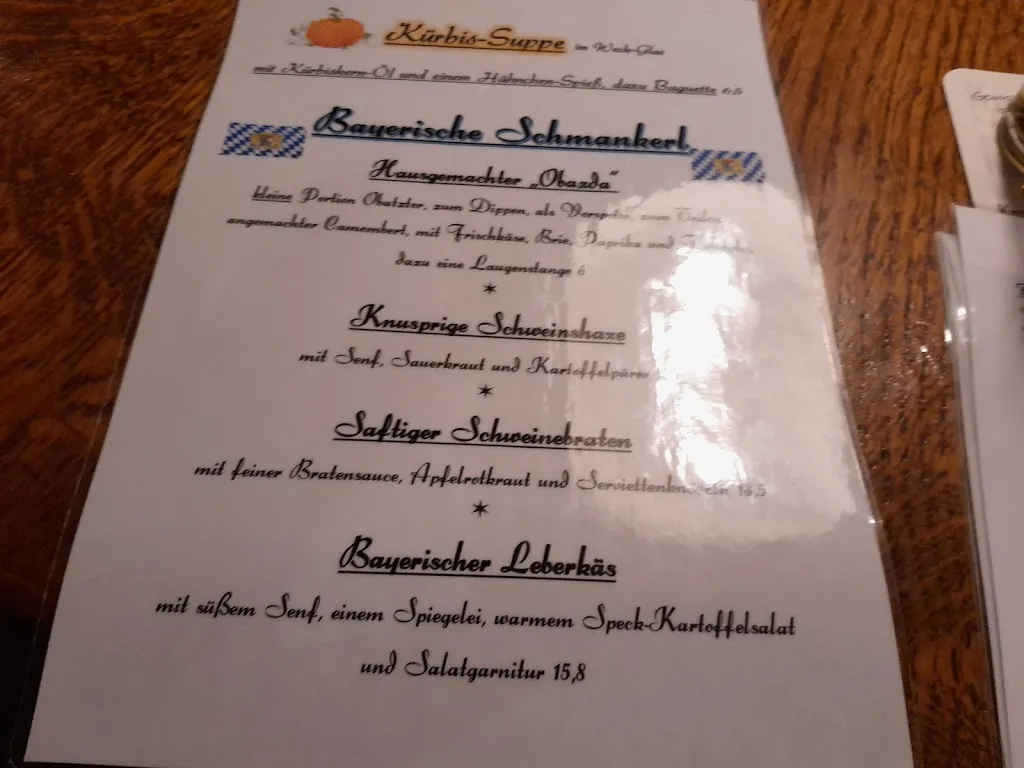 Kürbis-Suppe im Weck-Glas
mit Kürbiskern-Öl und einem Hähnchen-Spieß, dazu Baguette 6,5
Bayerische Schmankerl
Hausgemachter „Obazda“
kleine Portion Obatzter, zum Dippen, als Vorspeise, zum Teilen
angemachter Camembert, mit Frischkäse, Brie, Paprika und
dazu eine Laugenstange 6
*
Knusprige Schweinshaxe
mit Senf, Sauerkraut und Kartoffelpüree
*
Saftiger Schweinebraten
mit feiner Bratensauce, Apfelrotkraut und Serviettenknödeln
*
Bayerischer Leberkäs
mit süßem Senf, einem Spiegelei, warmem Speck-Kartoffelsalat
und Salatgarnitur 15,8